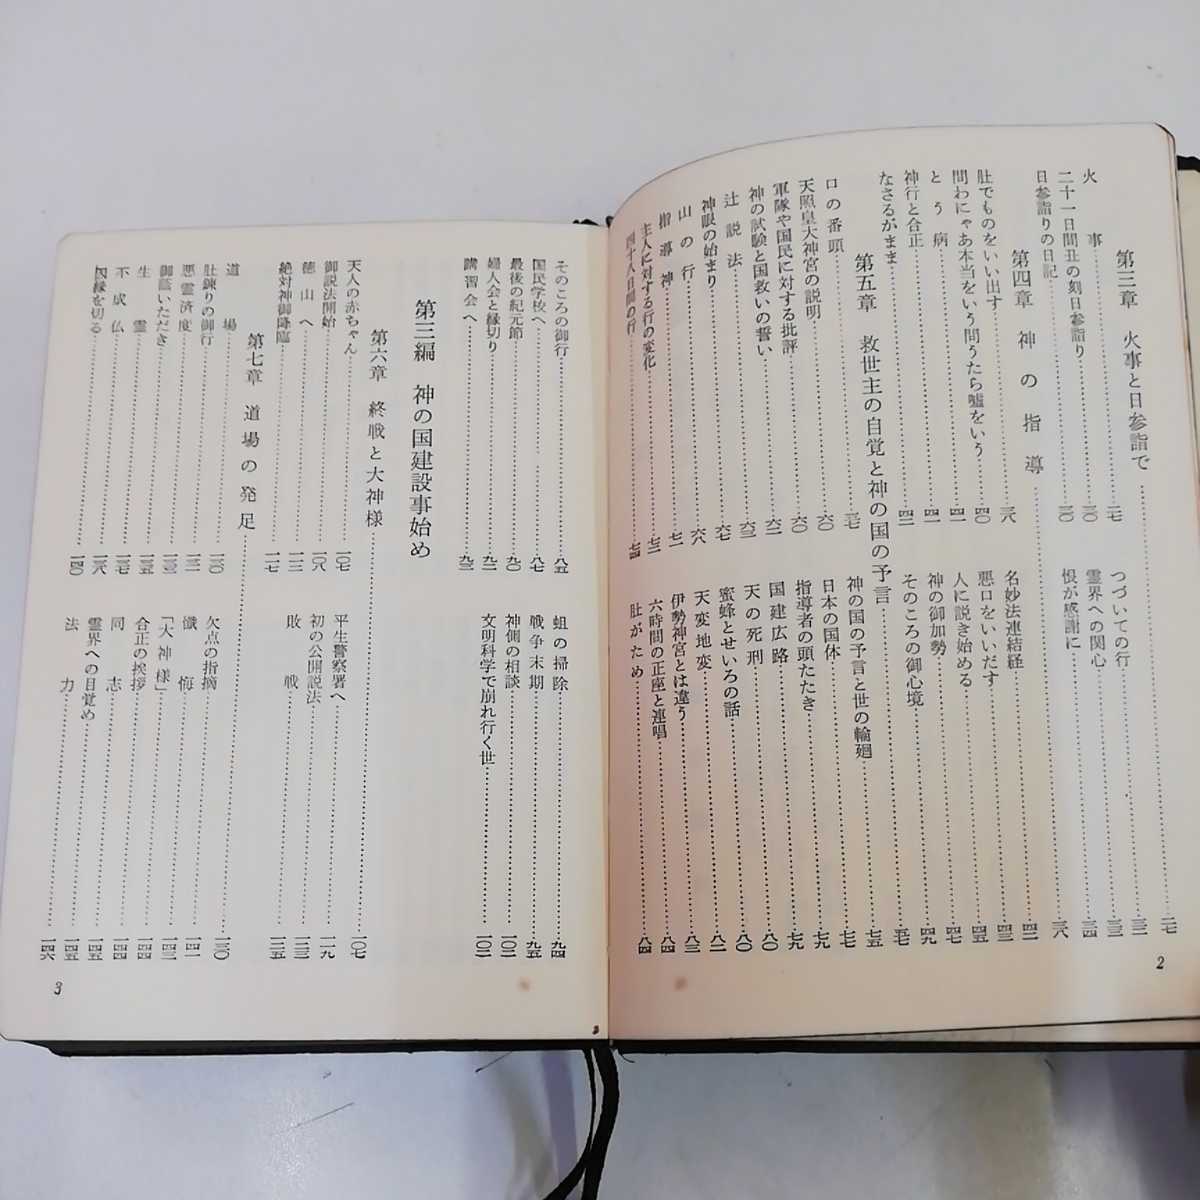 第三章 火事と日参詣で 二七
火事 三〇
二十一日間丑の刻日参詣り 三〇
日参詣りの日記
つづいての行 三二
霊界への関心 三三
恨が感謝に 三四
第四章 神の指導 三八
肚でものをいい出す 三八
問わにゃあ本当をいう問うたら嘘をいう 四〇
とう病 四一
神行と合正 四一
なさるがまま 四二
名妙法連結経 四二
悪口をいいだす 四三
人に説き始める 四五
神の御加勢 四七
そのころの御心境 四九
第五章 救世主の自覚と神の国の予言 五七
口の番頭 五七
天照皇大神宮の説明 六〇
軍隊や国民に対する批評 六〇
神の試験と国救いの誓い 六二
辻説法 六三
神眼の始まり 六七
山の行 六八
指導神 七一
主人に対する行の変化 七三
四十八日間の行 七四
神の国の予言と世の輪廻 七五
日本の国体 七七
指導者の頭たたき 七九
国建広路 七九
天の死刑 八〇
蜜蜂とせいろの話 八〇
天変地変 八二
伊勢神宮とは違う 八三
六時間の正座と連唱 八四
肚がため 八四
2
そのころの御行 八五
国民学校へ 八七
最後の紀元節 九〇
婦人会と縁切り 九二
講習会へ 九三
蛆の掃除 九四
戦争末期 九五
神側の相談 一〇二
文明科学で崩れ行く世 一〇二
第三編 神の国建設事始め
第六章 終戦と大神様 一〇七
天人の赤ちゃん 一〇七
御説法開始 一〇八
徳山へ 一一三
絶対神御降臨 一一七
平生警察署へ 一一九
初の公開説法 一二三
敗戦 一二五
第七章 道場の発足 一三〇
道場 一三〇
肚錬りの御行 一三二
悪霊済度 一三三
御諡いただき 一三五
生霊 一三七
不成仏 一三八
因縁を切る 一四〇
欠点の指摘 一四一
懺悔 一四三
「大神様」 一四四
合正の挨拶 一四四
同志 一四五
霊界への目覚め 一四五
法力 一四六
3